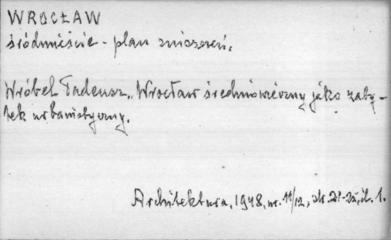 WROCŁAW
śródmieście - plan zniszczeń.
Wróbel Tadeusz, Wrocław średniowieczny jako zaby-
tek urbanistyczny.
Architektura, 1948, nr. 11/12, str. 21-32, il. 1.